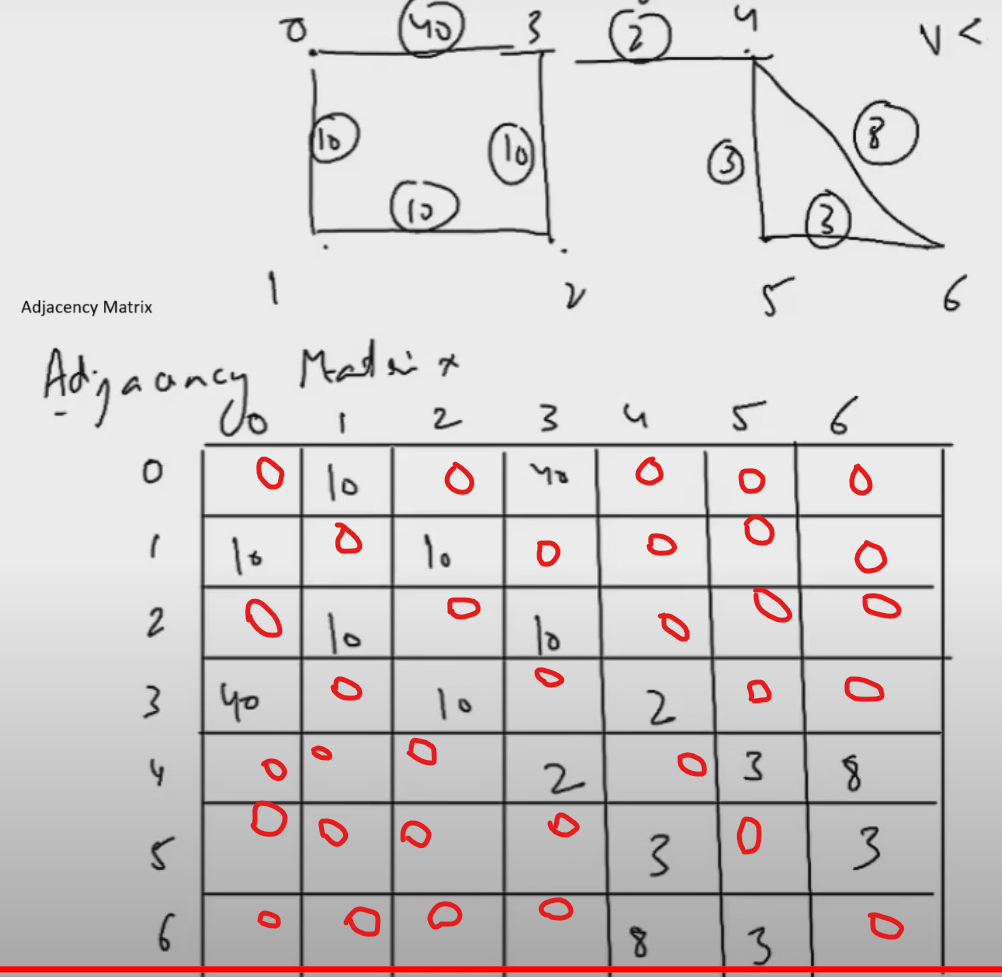 0 40 3 2 4 V <
10 10 3 8
10 3
1 2 5 6
Adjacency Matrix
Adjacency Matrix
0 1 2 3 4 5 6
0 0 10 0 40 0 0 0
1 10 0 10 0 0 0 0
2 0 10 0 10 0 0 0
3 40 0 10 0 2 0 0
4 0 0 0 2 0 3 8
5 0 0 0 0 3 0 3
6 0 0 0 0 8 3 0